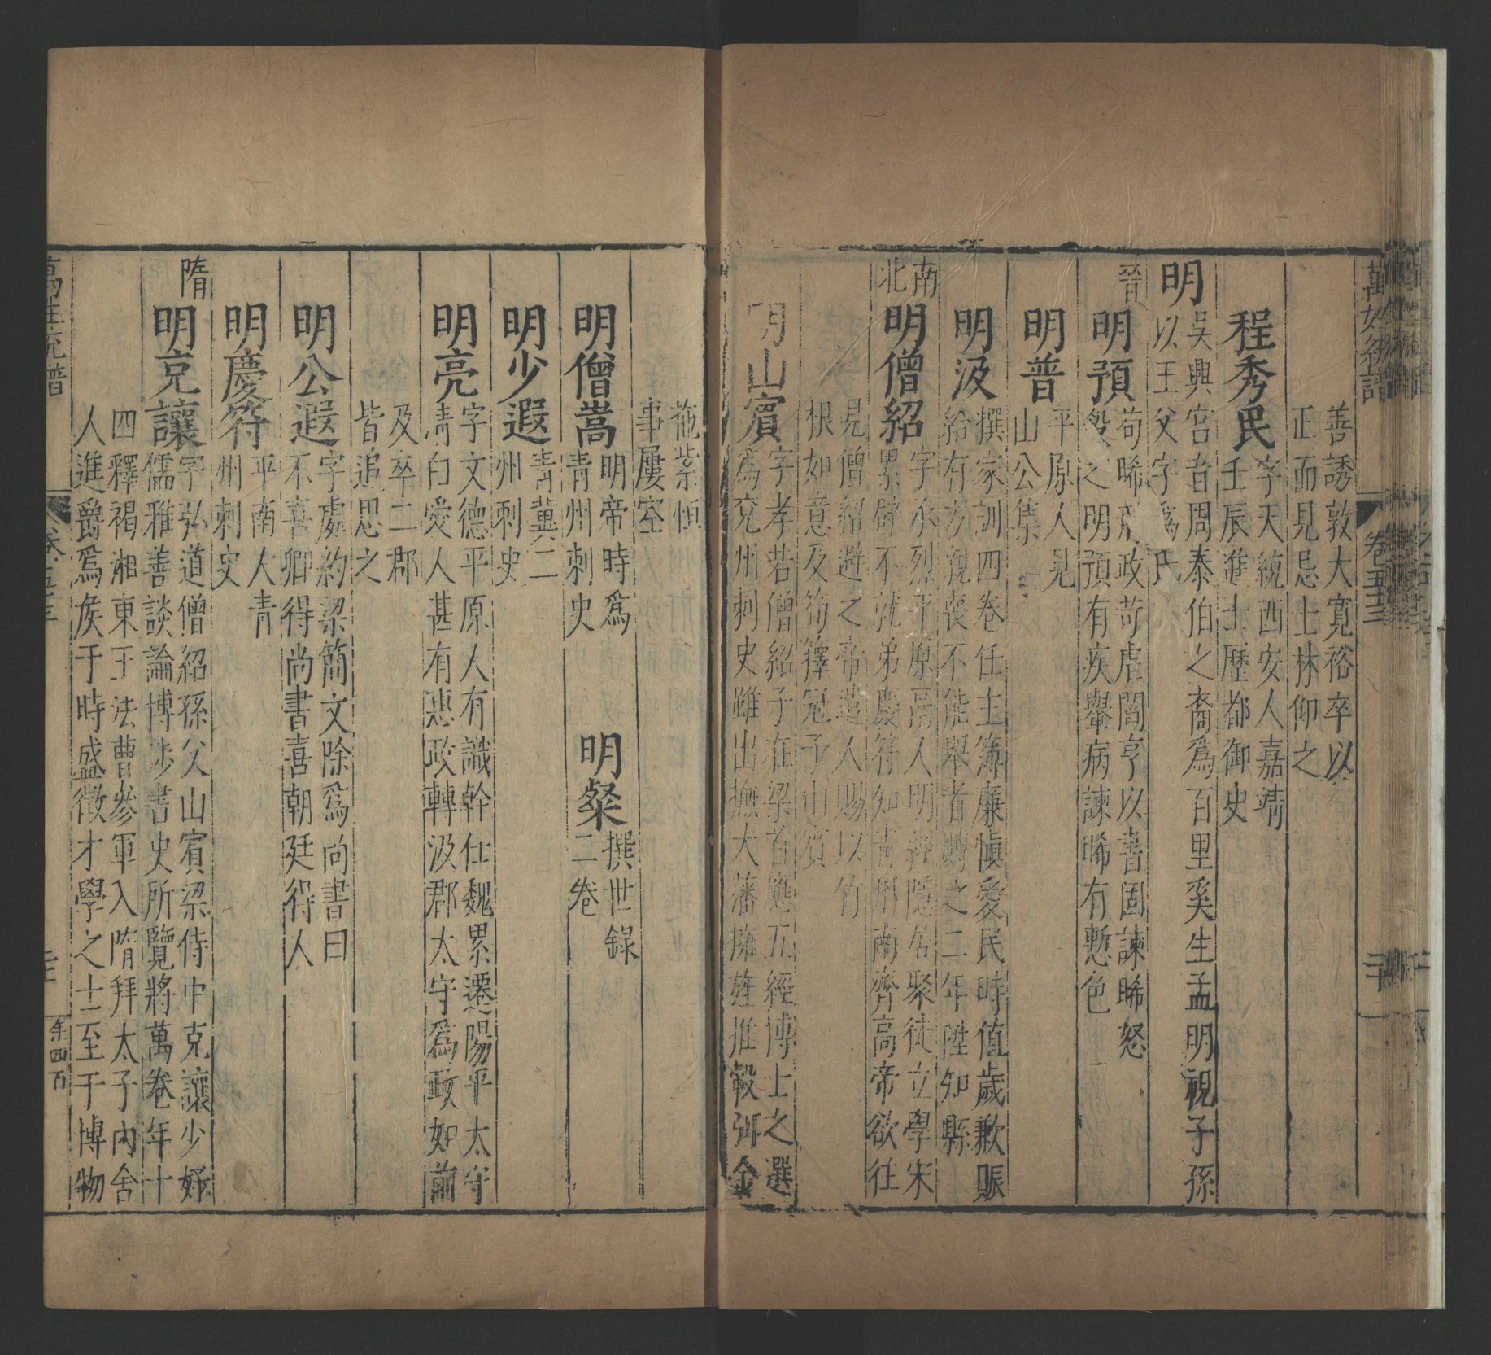 萬姓統譜
卷五十三
善誘敦大寬裕卒以
正而見忌士林仰之
程秀民
字天統西安人嘉靖
壬辰進士歷都御史
明
吳興宮音周泰伯之裔為百里奚生孟明視子孫
以王父字為氏
晉
明預
苟晞為政苛虐閻亨以書固諫晞怒
殺之明預有疾轝病諫晞有慙色
明普
平原人見
山公集
明汲
撰家訓四卷任主簿廉慎愛民時值歲歉賑
給有方親喪不能舉者賻之二年陞知縣
南北
明僧紹
字承烈平原鬲人明經隱居聚徒立學宋
累辟不就弟慶符知青州南齊高帝欲往
見僧紹避之帝遺人賜以竹
根如意及筍籜冠子山賓
明山賓
字孝若僧紹子在梁首應五經博士之選
為兗州刺史雖出撫大藩擁旌推轂珥金
拖紫恒
事屢空
明僧嵩
明帝時為
青州刺史
明粲
撰世錄
二卷
明少遐
青冀二
州刺史
明亮
字文德平原人有識幹仕魏累遷陽平太守
清白愛人甚有惠政轉汲郡太守為政如前
及卒二郡
皆追思之
明公遐
字處約梁簡文除為尚書曰
不喜卿得尚書喜朝廷得人
明慶符
平南人青
州刺史
隋
明克讓
字弘道僧紹孫父山賓梁侍中克讓少好
儒雅善談論博涉書史所覽將萬卷年十
四釋褐湘東王法曹參軍入隋拜太子內舍
人進爵為侯于時盛徵才學之士至于博物
萬姓統譜
卷五十三